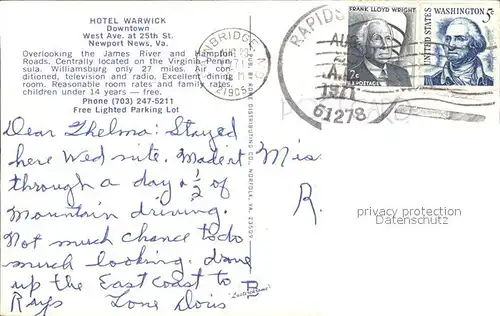 HOTEL WARWICK
Downtown
West Ave. at 25th St.
Newport News, Va.
Overlooking the James River and Hampton
Roads. Centrally located on the Virginia Penn-
sula. Williamsburg only 27 miles. Air con-
ditioned, television and radio. Excellent dining
room. Reasonable room rates and family rates,
children under 14 years — free.
Phone (703) 247-5211
Free Lighted Parking Lot
RAPIDS
AUG
1971
61278
FRANK LLOYD WRIGHT
2c
U.S. POSTAGE
UNITED STATES
WASHINGTON
5c
Dear Thelma: Stayed
here Wed nite. Made it
through a day & 1/2 of
Mountain driving.
Not much chance to do
much looking. drove
up the East Coast to
Rays Love Doris
Mis
R.
privacy protection
Datenschutz